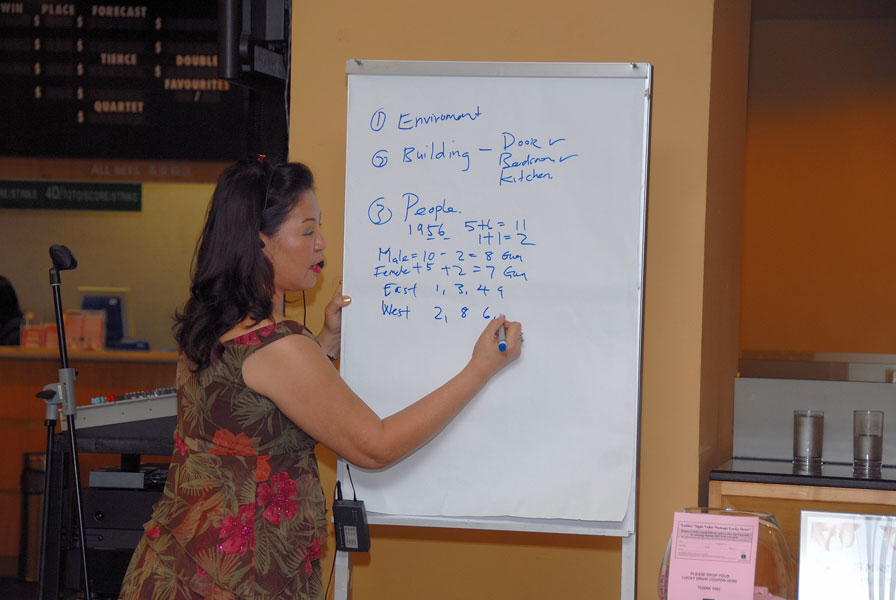 WIN PLACE FORECAST
TIERCE DOUBLE
FAVOURITES
QUARTET
ALL BETS
4D/TOTO/SCORE/STRIKE
① Enviroment
② Building – Door ✓
Bedroom ✓
Kitchen
③ People.
1956 5+6 = 11
1+1 = 2
Male = 10 - 2 = 8 Gua
Female + 5 + 2 = 7 Gua
East 1, 3, 4 9
West 2, 8 6,
PLEASE DROP YOUR
LUCKY DRAW COUPON HERE
THANK YOU